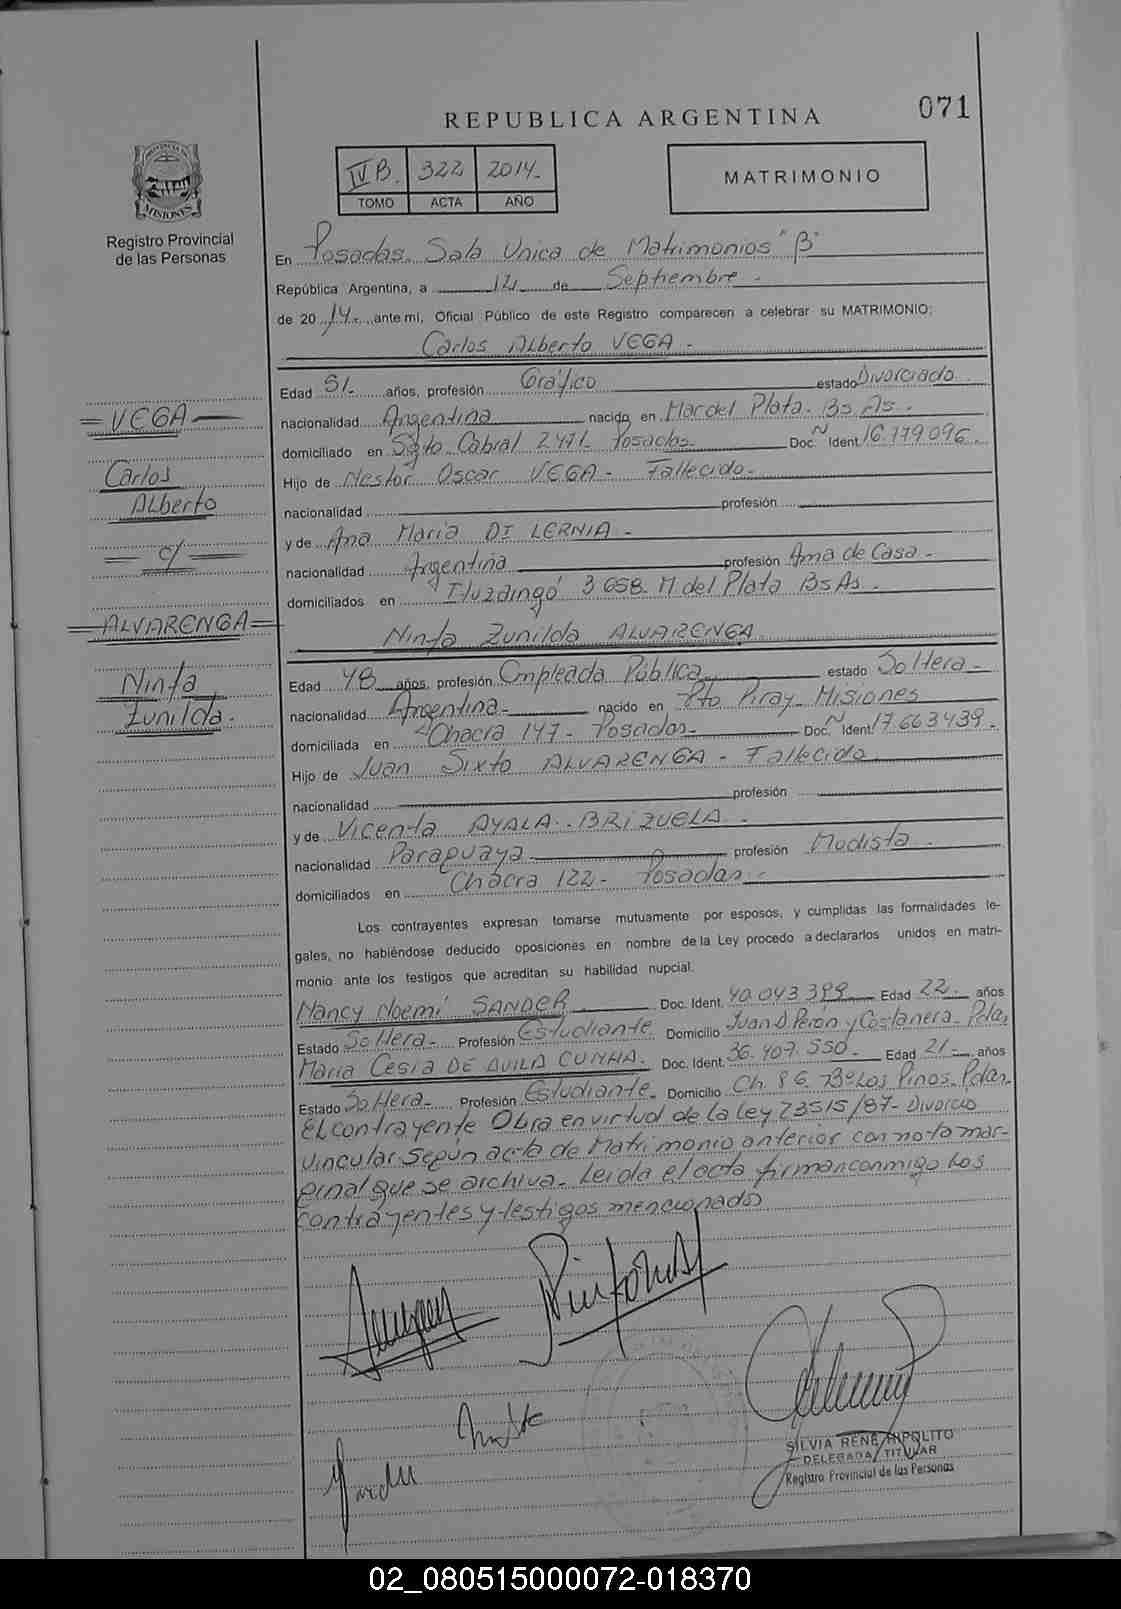 REPUBLICA ARGENTINA
071
PROVINCIA DE
MISIONES
Registro Provincial
de las Personas
IV B. 322 2014-
TOMO ACTA AÑO
MATRIMONIO
En Posadas. Sala Unica de Matrimonios "B"
República Argentina, a 12 de Septiembre -
de 2014.- ante mi, Oficial Público de este Registro comparecen a celebrar su MATRIMONIO:
Carlos Alberto VEGA -
Edad 51- años, profesión Gráfico estado Divorciado
nacionalidad Argentina nacido en Mar del Plata. Bs As.
domiciliado en Sgto Cabral 2471 Posadas- Doc. Ident. 16.779.096.
Hijo de Nestor Oscar VEGA - Fallecido-
nacionalidad profesión
y de Ana Maria DI LERNIA -
nacionalidad Argentina profesión Ama de Casa -
domiciliados en Ituzaingó 3658 M del Plata Bs As -
Ninfa Zunilda ALVARENGA
Edad 48 años, profesión Empleada Pública estado Soltera -
nacionalidad Argentina- nacido en Pto Piray- Misiones
domiciliada en Chacra 147- Posadas- Doc. Ident. 17.663.439.
Hijo de Juan Sixto ALVARENGA - Fallecido
nacionalidad profesión
y de Vicenta AYALA - BRIZUELA -
nacionalidad Paraguaya profesión Modista
domiciliados en Chacra 122- Posadas-
Los contrayentes expresan tomarse mutuamente por esposos, y cumplidas las formalidades le-
gales, no habiéndose deducido oposiciones en nombre de la Ley procedo a declararlos unidos en matri-
monio ante los testigos que acreditan su habilidad nupcial.
Nancy Noemí SANDER Doc. Ident. 40.043.399 Edad 22- años
Estado Soltera- Profesión Estudiante Domicilio Juan D. Perón y Costanera- Pdas
Maria Cesia DE AVILA CUNHA. Doc. Ident. 36.407.550- Edad 21- años
Estado Soltera- Profesión Estudiante- Domicilio Ch. 86 Bº Los Pinos- Pdas-
El contrayente Obra en virtud de la Ley 23515/87- Divorcio
vincular segun acta de Matrimonio anterior con nota mar-
ginal que se archiva- Leida el acta firman conmigo los
contrayentes y testigos mencionados
= VEGA =
Carlos
Alberto
= c/ =
= ALVARENGA =
Ninfa
Zunilda-
SILVIA RENE HIPOLITO
DELEGADA TITULAR
Registro Provincial de las Personas
02_080515000072-018370